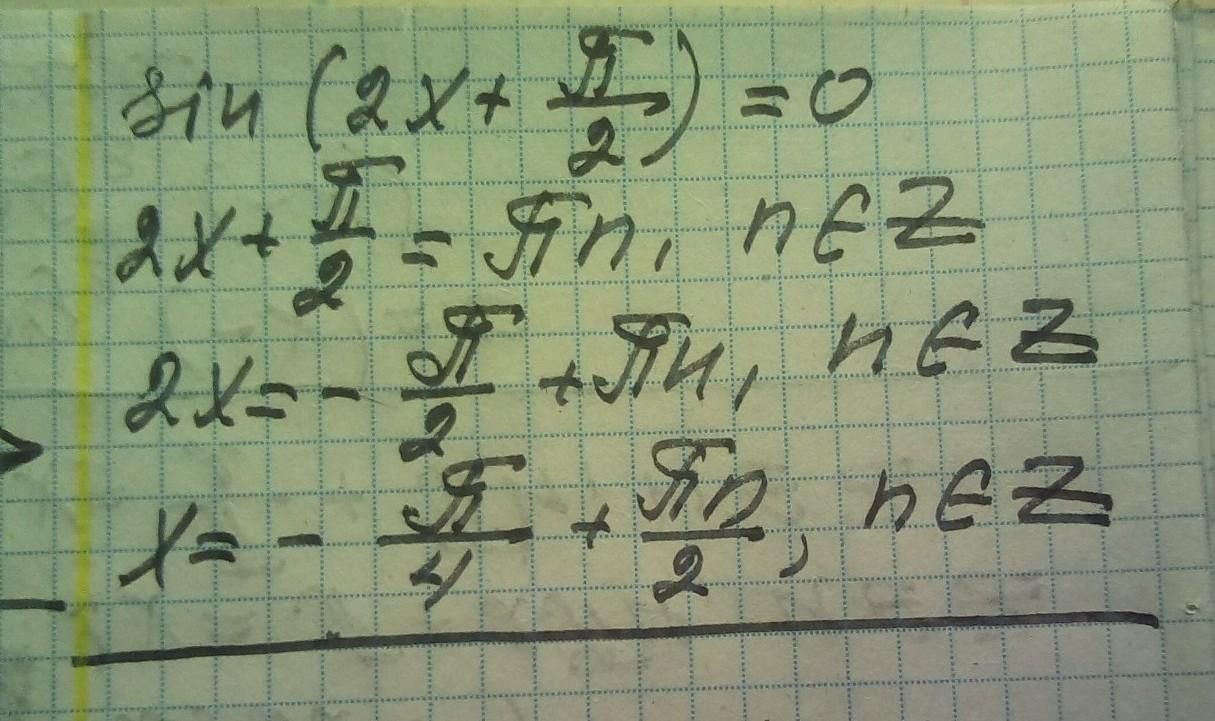 sin (2x + π/2) = 0
2x + π/2 = πn, n ∈ Z
2x = - π/2 + πn, n ∈ Z
x = - π/4 + πn/2, n ∈ Z